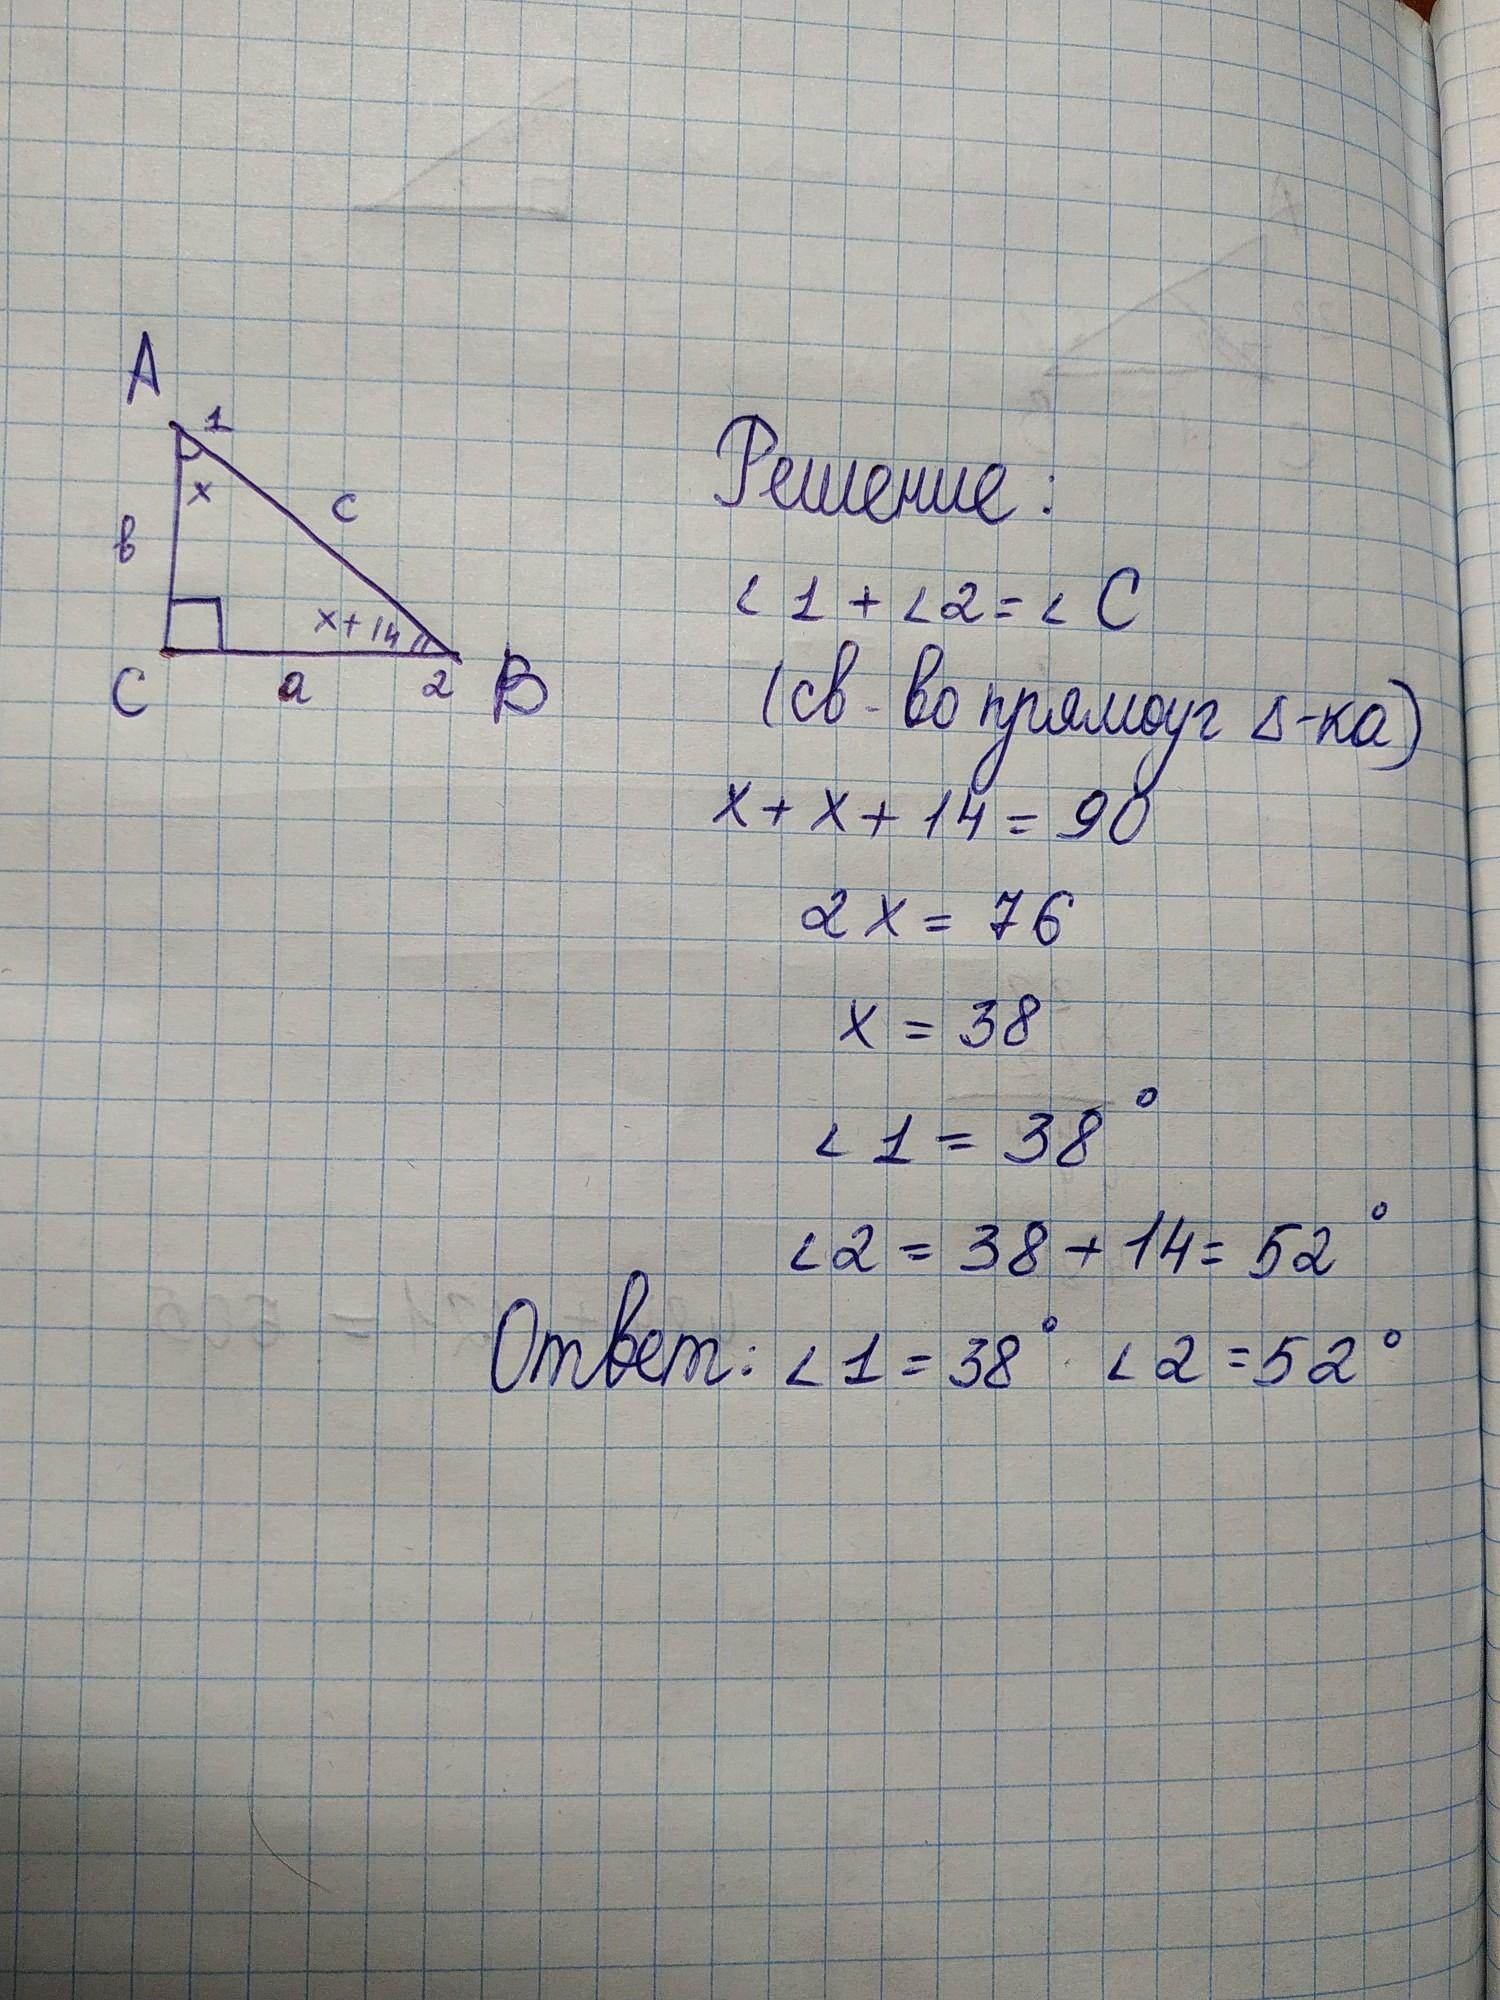 A
1
x
c
в
x+14
C
a
2
B
Решение:
∠1+∠2=∠C
(св-во прямоуг Δ-ка)
x+x+14=90
2x=76
x=38
∠1=38°
∠2=38+14=52°
Ответ: ∠1=38° ∠2=52°